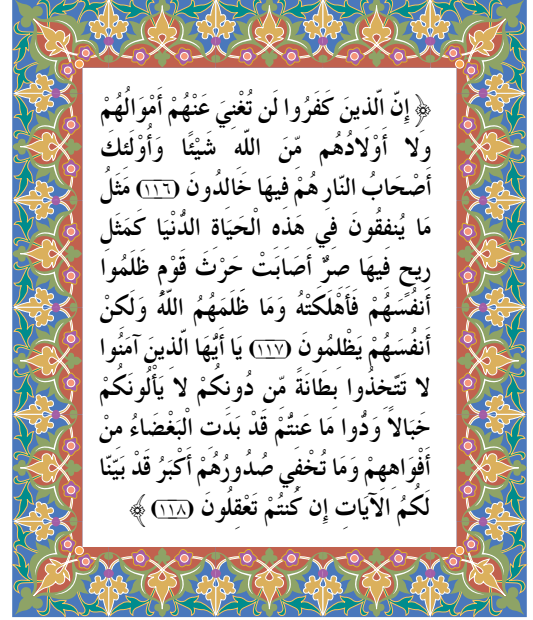 ﴿ إِنّ الّذينَ كَفَرُوا لَن تُغْنيَ عَنْهُمْ أَمْوَالُهُمْ
ولا أَوْلَادُهُم مّنَ اللّه شيْئًا وَأُوْلَئك
أَصْحَابُ النّار هُمْ فيهَا خَالدُونَ (١١٦) مَثَلُ
مَا يُنفقُونَ في هَذه الْحَيَاة الدُّنْيَا كَمَثَل
ريحٍ فيهَا صرٌّ أصَابَتْ حَرْثَ قَوْمٍ ظَلَمُوا
أَنفُسَهُمْ فَأَهْلَكَتْهُ وَمَا ظَلَمَهُمُ اللَّهُ وَلَكنْ
أَنفُسَهُمْ يَظْلمُونَ (١١٧) يَا أيُّهَا الّذينَ آمَنُوا
لا تَتّخذُوا بطَانَةً مّن دُونكُمْ لا يَأْلُونَكُمْ
خَبَالاً وَدُّوا مَا عَنتُّمْ قَدْ بَدَت الْبَغْضَاءُ منْ
أَفْوَاههمْ وَمَا تُخْفي صُدُورُهُمْ أَكْبَرُ قَدْ بَيّنّا
لَكُمُ الآيَات إِن كُنتُمْ تَعْقلُونَ (١١٨) ﴾